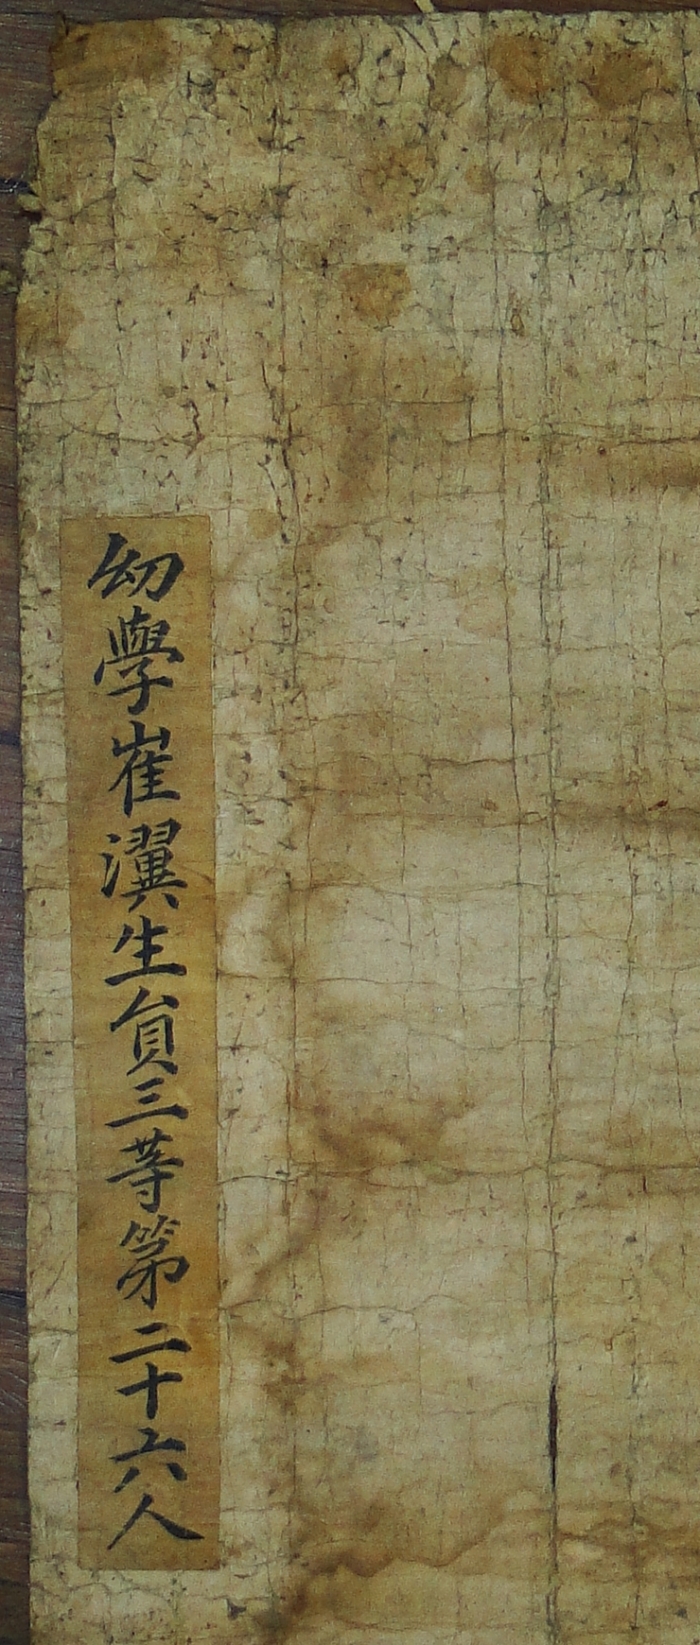 幼學崔瀷生員三等第二十六人